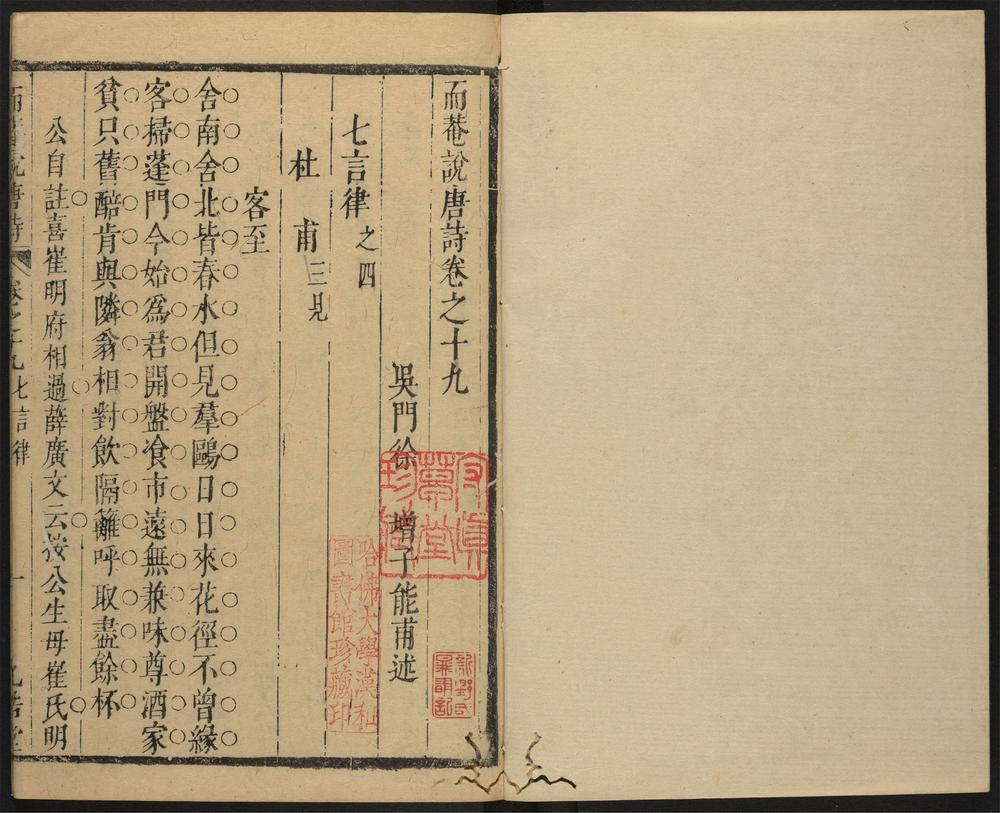 而菴說唐詩卷之十九
吳門徐　增子能甫述
七言律之四
杜　甫三見
客至
舍南舍北皆春水但見羣鷗日日來花徑不曾緣
客掃蓬門今始爲君開盤飧市遠無兼味尊酒家
貧只舊醅肯與隣翁相對飲隔籬呼取盡餘杯
公自註喜崔明府相過薛廣文云按公生母崔氏明
而菴說唐詩　卷之十九七言律　一　九誥堂
哈佛大學漢和
圖書館珍藏印